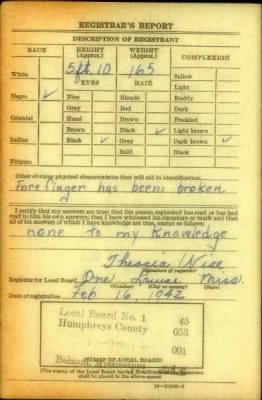 REGISTRAR'S REPORT
DESCRIPTION OF REGISTRANT
RACE HEIGHT (Approx.) WEIGHT (Approx.) COMPLEXION
5 ft. 10 165
White Sallow
EYES HAIR Light
Negro ✓ Blue Blonde Ruddy
Gray Red Dark
Oriental Hazel Brown Freckled
Brown Black ✓ Light brown
Indian Black ✓ Gray Dark brown ✓
Bald Black
Filipino
Other obvious physical characteristics that will aid in identification
Fore finger has been broken
I certify that my answers are true; that the person registered has read or has had
read to him his own answers; that I have witnessed his signature or mark and that
all of his answers of which I have knowledge are true, except as follows:
none to my Knowledge
Wise
(Signature of registrar)
Registrar for Local Board One Miss.
(Number) (City or county) (State)
Date of registration Feb 16, 1942
Local Board No. 1 45
Humphreys County 053
001
Belzoni, Mississippi
(STAMP OF LOCAL BOARD)
(The stamp of the Local Board having jurisdiction of the registrant
shall be placed in the above space)